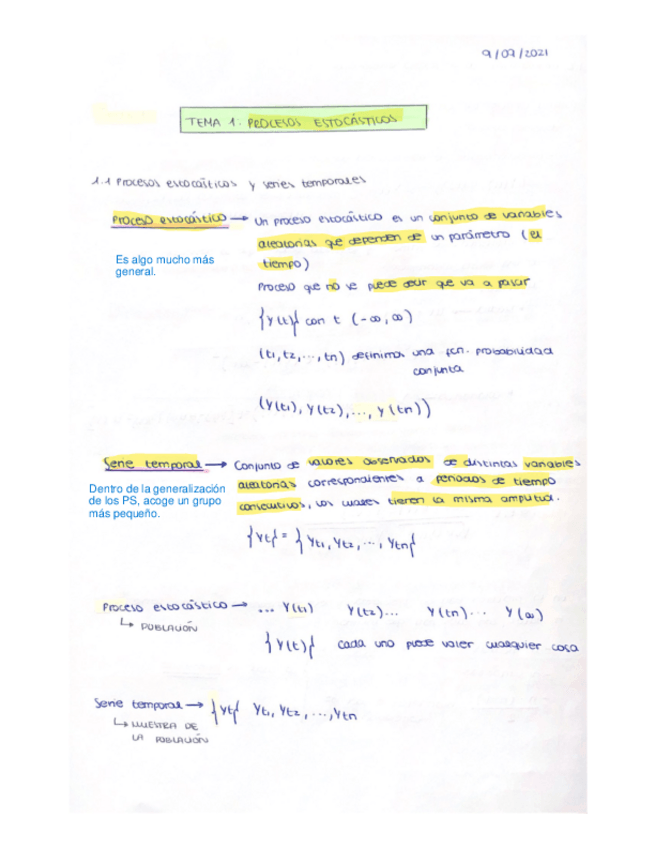 9/07/2021
TEMA 1. PROCESOS ESTOCÁSTICOS
1.1 Procesos estocásticos y series temporales
Proceso estocástico → Un proceso estocástico es un conjunto de variables
aleatorias que dependen de un parámetro (el
tiempo)
Es algo mucho más
general.
Proceso que no se puede decir que va a pasar
{Y(t)} con t (-∞, ∞)
(t1, t2, ..., tn) definimos una fcn. probabilidad
conjunta
(Y(t1), Y(t2), ..., Y(tn))
Serie temporal → Conjunto de valores observados de distintas variables
aleatorias correspondientes a periodos de tiempo
consecutivos, los cuales tienen la misma amplitud.
Dentro de la generalización
de los PS, acoge un grupo
más pequeño.
{Yt} = {Yt1, Yt2, ..., Ytn}
Proceso estocástico → ... Y(t1) Y(t2)... Y(tn)... Y(∞)
↳ POBLACIÓN
{Y(t)} cada uno puede valer cualquier cosa
Serie temporal → {Yt} Yt1, Yt2, ..., Ytn
↳ MUESTRA DE
LA POBLACIÓN